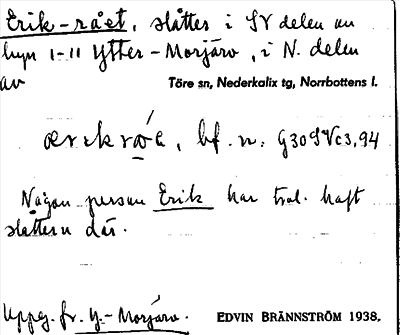 Erik-rået, slåtter i SV delen av
byn 1-11 Ytter-Morjärv, i N. delen
av Töre sn, Nederkalix tg, Norrbottens l.
ærikrǫ́e, bf. n: G30SVc3,94
Någon person Erik har trol. haft
slåttern där.
Uppg. fr. Y.-Morjärv. EDVIN BRÄNNSTRÖM 1938.